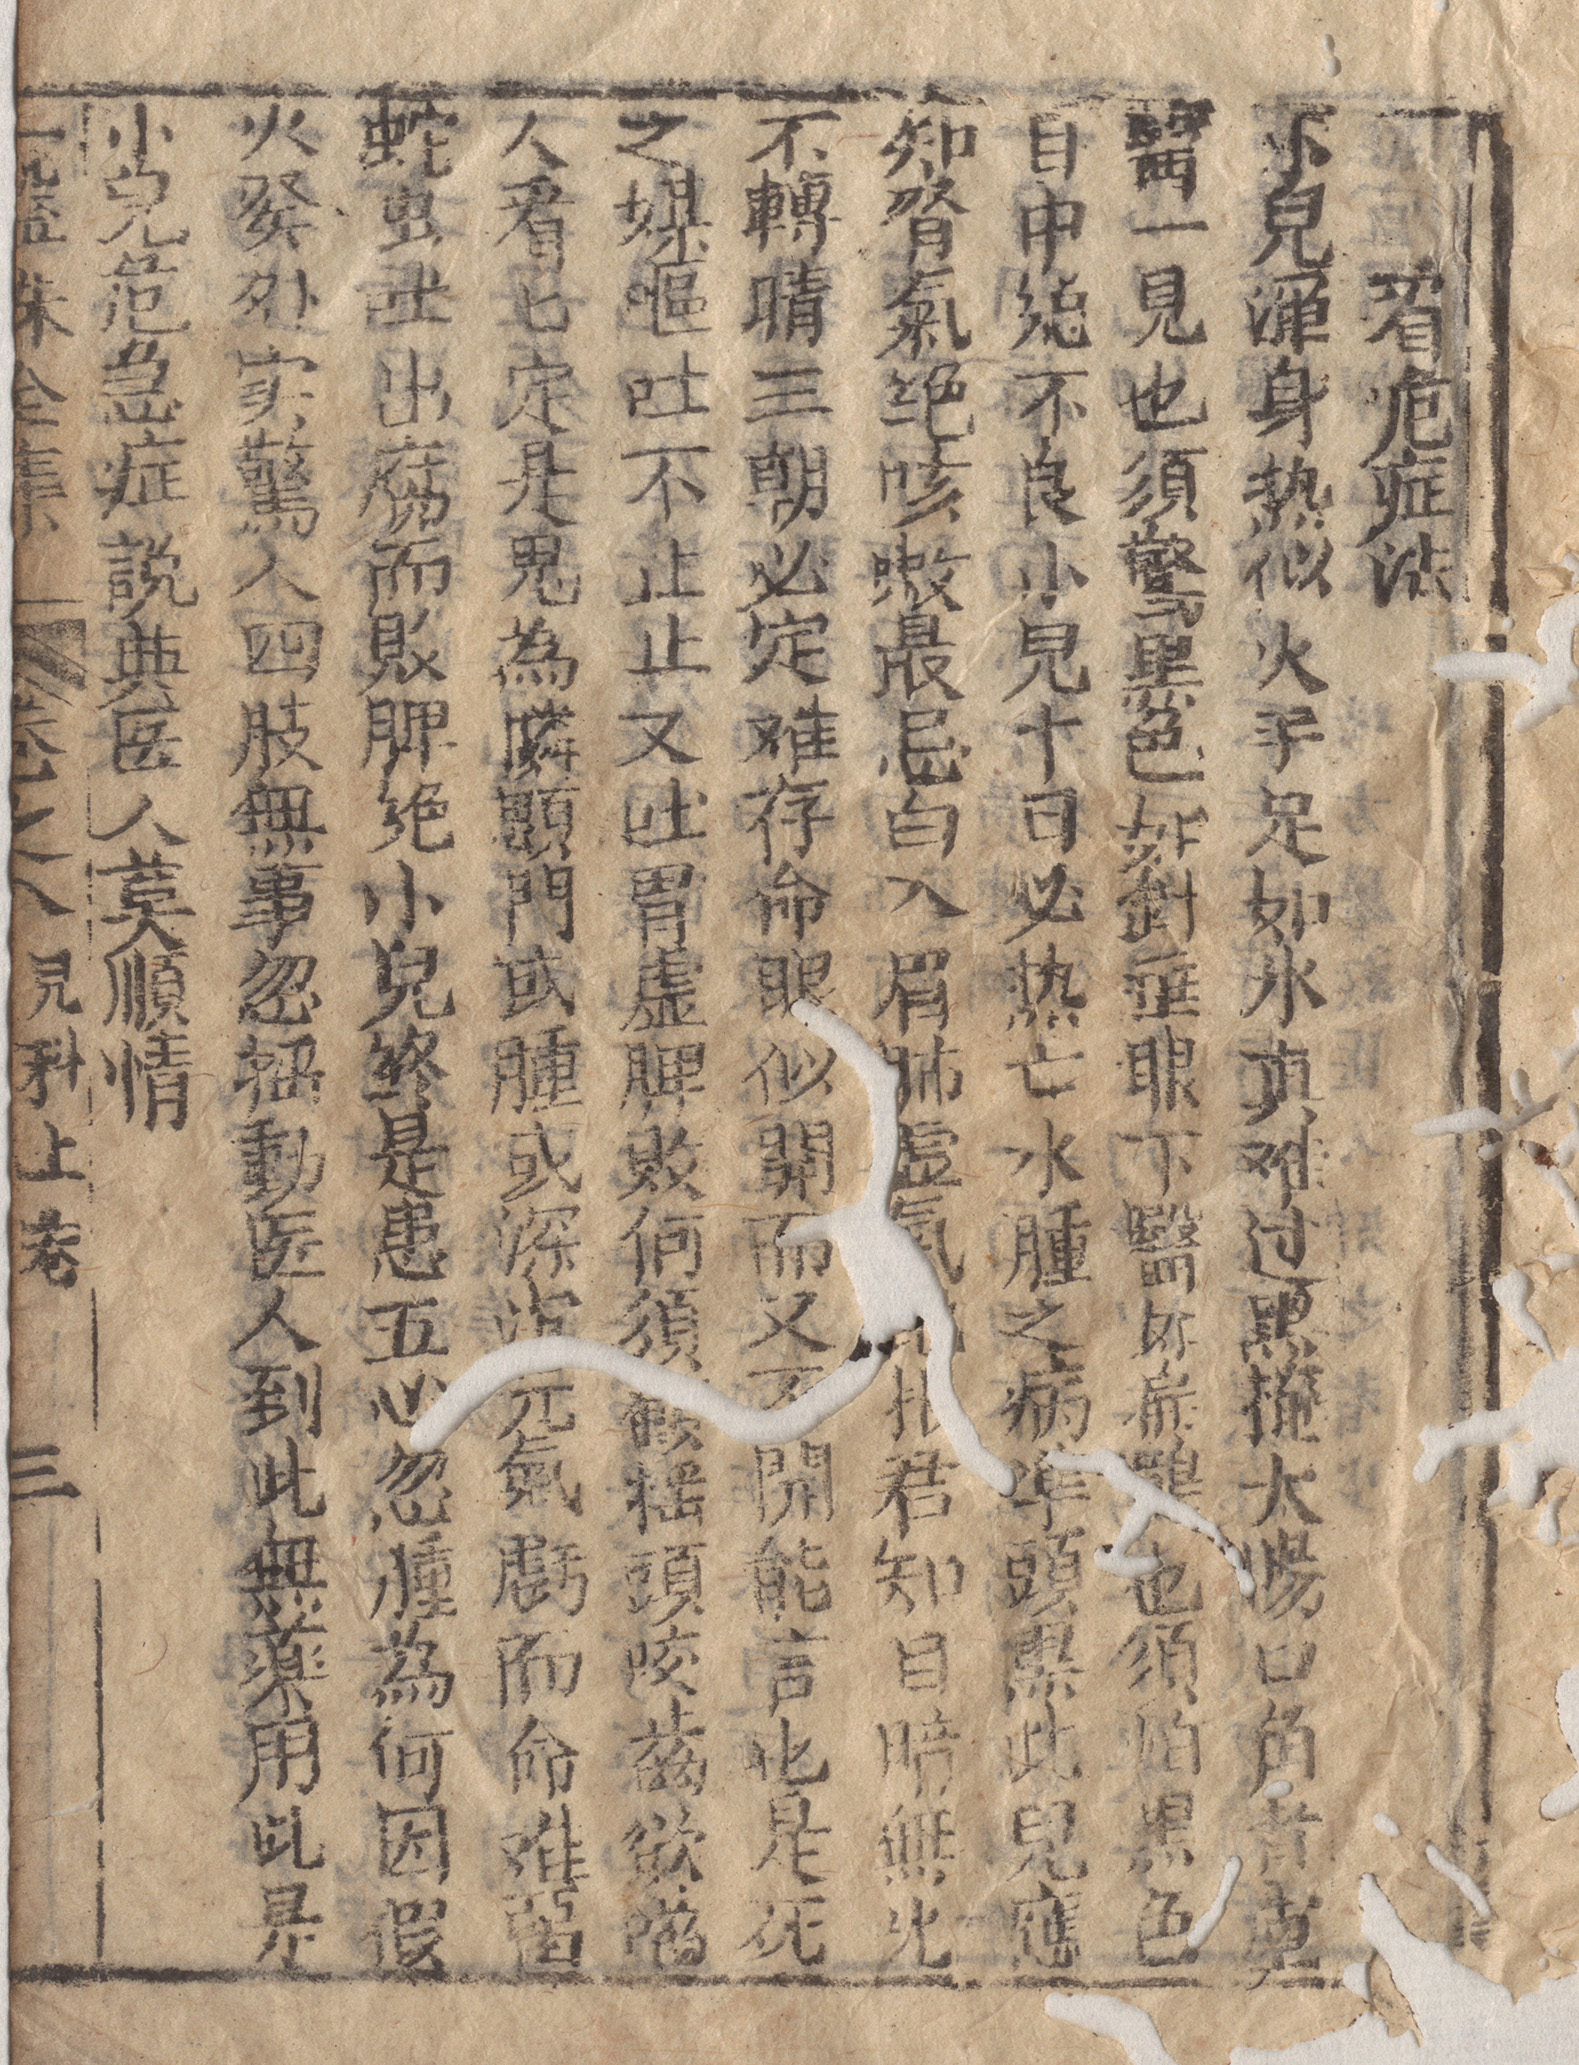 看危症法
小兒渾身热似火手足如氷真难过黑掩太陽口角青莫
醫一見也須驚黑色如針垂眼下醫如盧也須怕黑色
目中絶不良小兒十日必热亡水腫之病準頭黑此兒應
知腎氣绝咳嗽最忌白入眉肺虚氣君知目暗無光
不轉睛三朝必定难存命眼似開而又不開能言也是死
之媒嘔吐不止止又吐胃虚脾敗何須搖頭咬齒欲
人看七定是鬼為隣顖門或腫或深元氣虧而命难留
蛇虫吐出腐而敗脾绝小兒終是患五心忽腫為何因假
火發外实驚人四肢無事忽搐動医人到此無藥用此是
小兒危急症説典医人莫順情
珠全集 卷之八 児科上卷 三